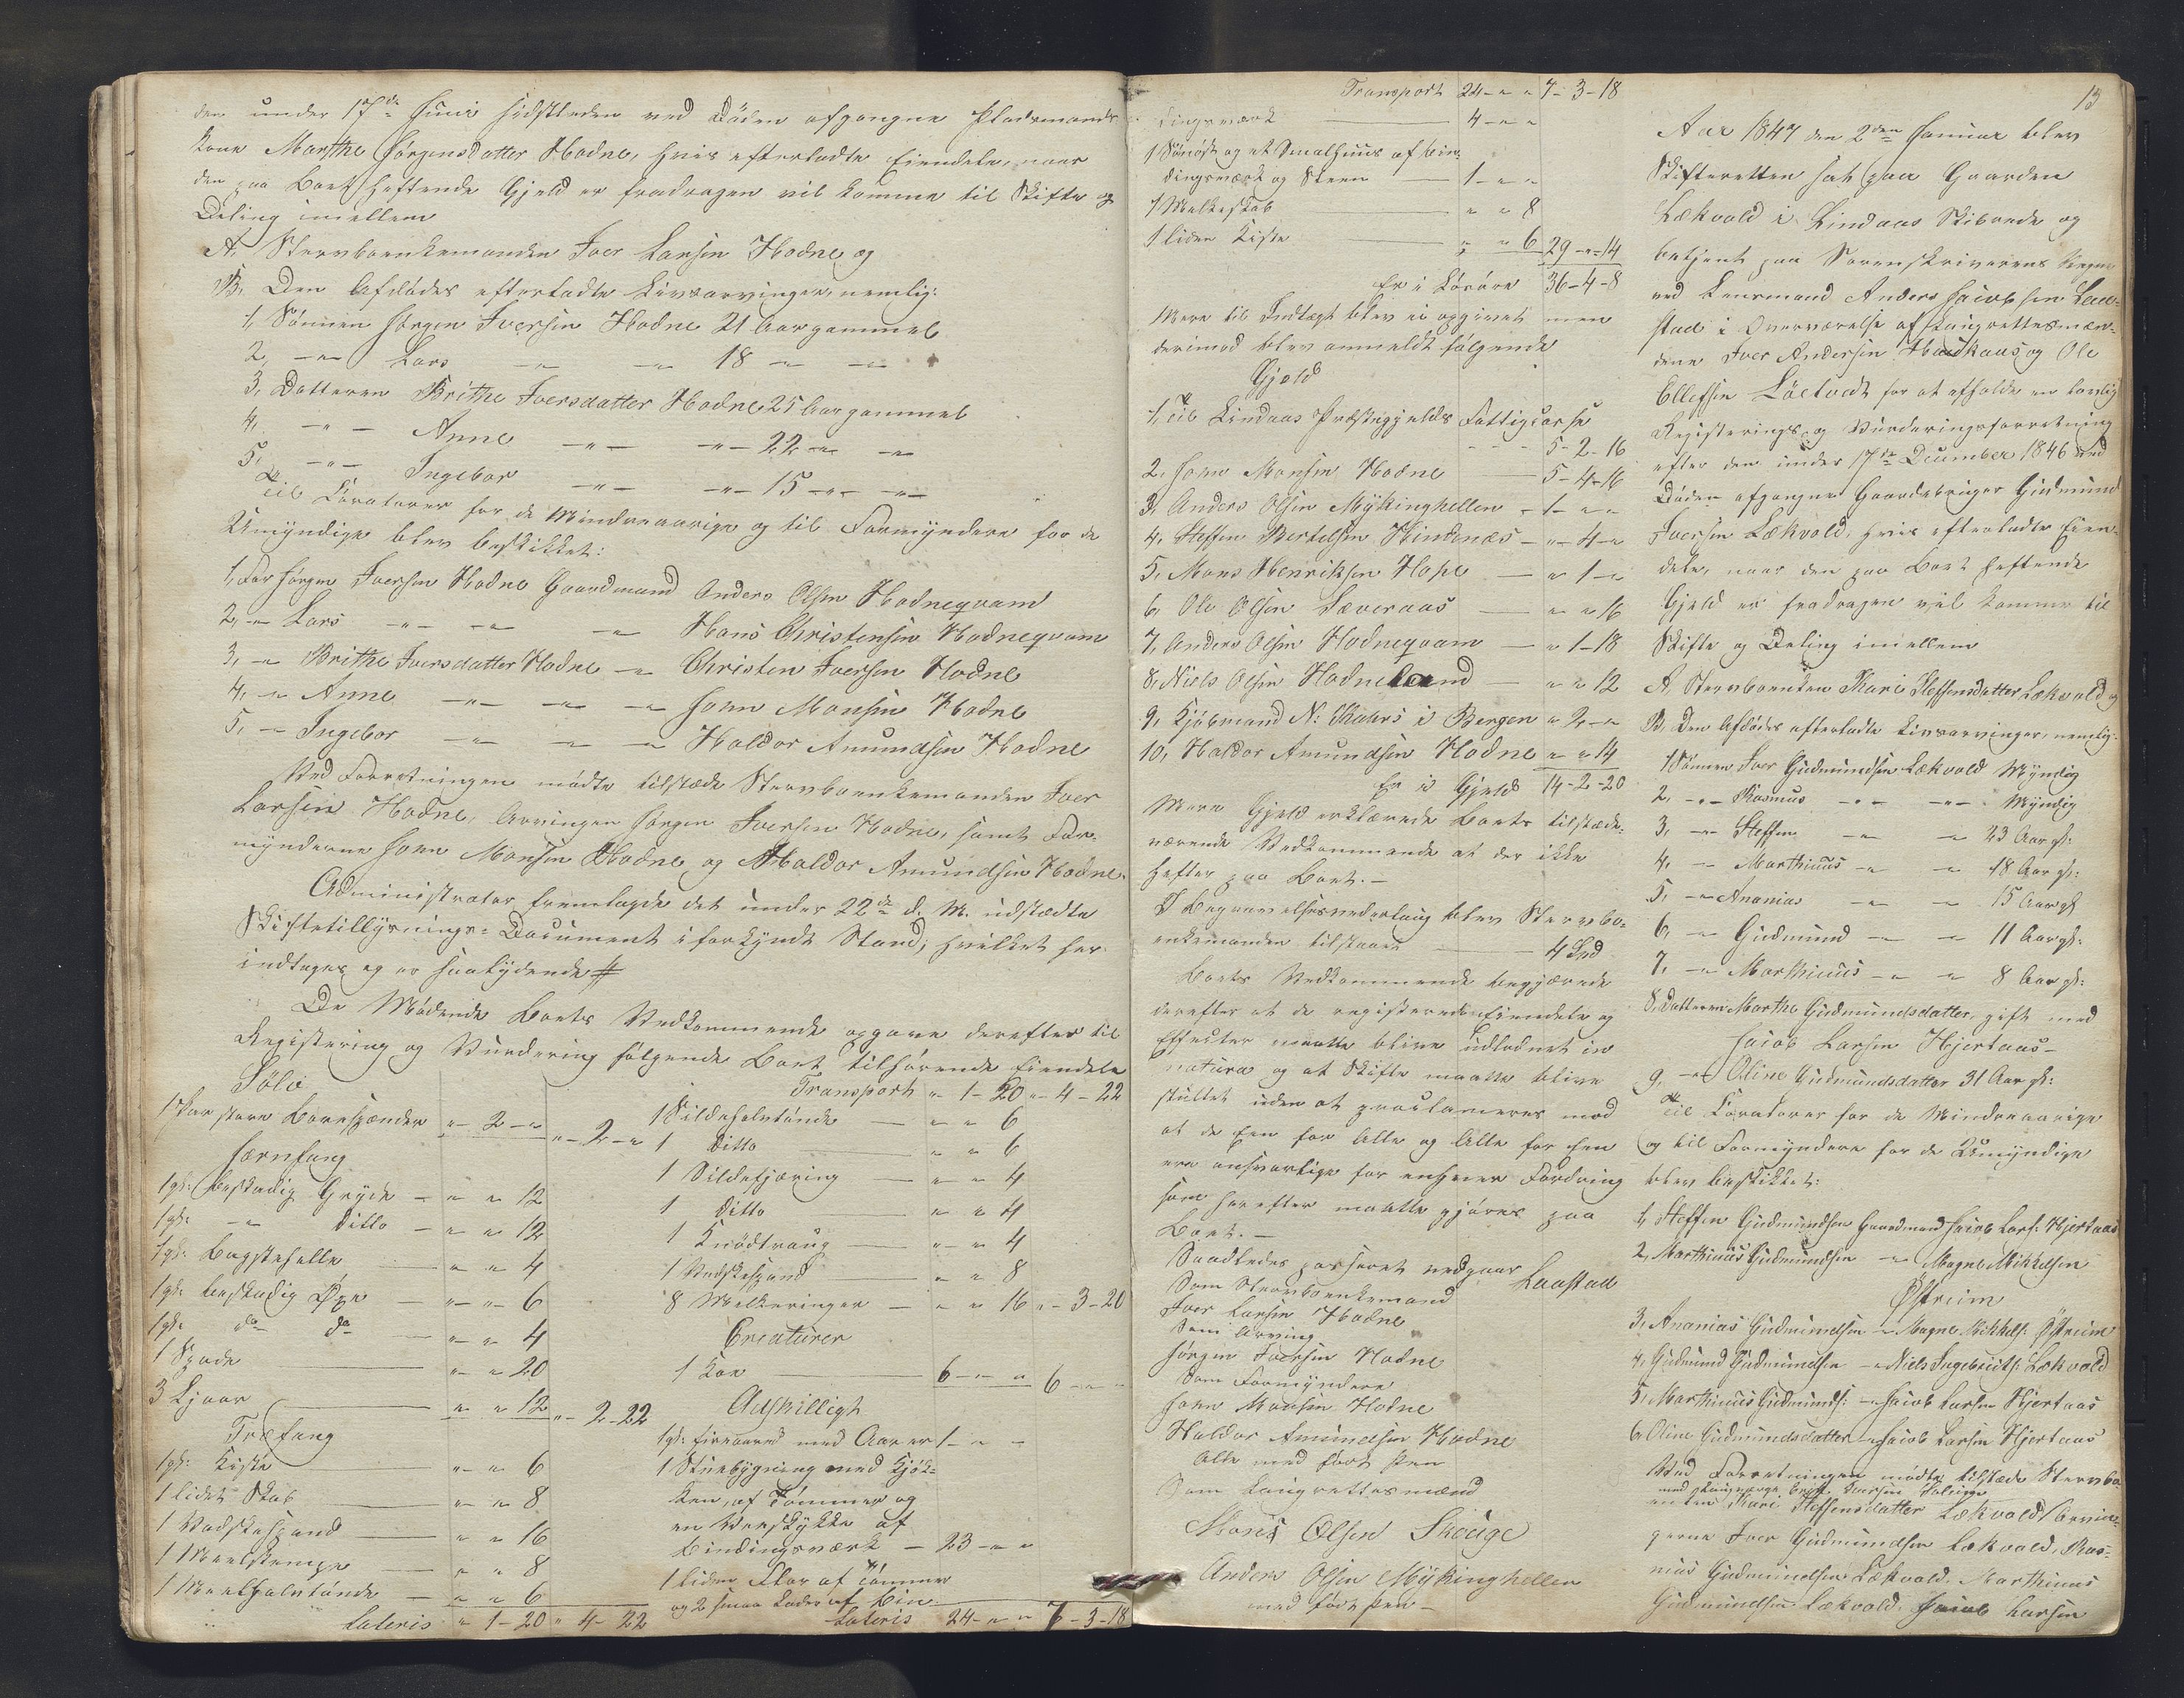 den under 17de Junii sidstleden ved Døden afgangne Pladsmands
kone Marthe Jørgensdatter Hodne, hvis efterladte Eiendele, naar
den paa Boet heftende Gjeld er fradragen vil komme til Skifte og
Deling imellem
A, Stervboenkemanden Iver Larsen Hodne og
B, Den Afdødes efterladte Livsarvinger, nemlig:
1, Sønnen Jørgen Iversen Hodne 21 Aar gammel
2, -"- Lars -"- -"- 18 -"- -"-
3, Datteren Brithe Iversdatter Hodne 25 Aar gammel
4, -"- Anne -"- -"- 22 -"- -"-
5, -"- Ingebor -"- -"- 15 -"- -"-
Til Curatorer for de Mindreaarige og til Formyndere for de
Umyndige blev beskikket:
1, For Jørgen Iversen Hodne Gaardmand Anders Olsen Hodneqvam
2, -"- Lars -"- -"- -"- Hans Christensen Hodneqvam
3, -"- Brithe Iversdatter Hodne -"- Christen Iversen Hodne
4, -"- Anne -"- -"- -"- John Monsen Hodne
5, -"- Ingebor -"- -"- -"- Haldor Amundsen Hodne
Ved Forretningen mødte tilstæde Stervboenkemanden Iver
Larsen Hodne, Arvingen Jørgen Iversen Hodne, samt For-
mynderne John Monsen Hodne og Haldor Amundsen Hodne.
Administrator fremlagde det under 22de d. M. udstædte
Skiftetillysnings-Document i forkyndt Stand, hvilket her
indtages og er saalydende #
De Mødende Boets Vedkommende opgave derefter til
Registering og Vurdering følgende Boet tilhørende Eiendele
Sølv
1 Par store Borespænder " - 2 - " " - 2 - "
Jernfang
1 gl: beskadig Gryde - " - " 12
1 gl: -"- Ditto - " - " 12
1 gl: Bagstehelle " - " 4
1 gl: beskadig Øxe " - " 6
1 gl: do do " - " 4
1 Spade " - " 20
3 Ljaar " - " 12 " - 2 - 22
Træfang
1 gl: Kiste " - " 6
1 lidet Skab " - " 8
1 Vadskespand " - " 16
1 Meelstampe " - " 8
1 Meelhalvtønde " - " 6
Lateris " 1 - 20 " 4 - 22
Transport " 1 - 20 " - 4 - 22
1 Sildehalvtønde " " 6
1 Ditto " " 6
1 Sildefjæring " " 4
1 Ditto " " 4
1 Knødtraug " " 4
1 Vadskespand " " 8
8 Melkeringer " " 16 " - 3 - 20
Creaturer
1 Koe 6 - " - " 6 - " - "
Adskilligt
1 gl: Fireaaret med Aarer 1 - " -
1 Stuebygning med Kjøk-
ken, af Tømmer og
en Veerstykke af
Bindingsværk - 23 - " "
1 liden Flor af Tømmer
og 2 smaa Lader af Bin-
Lateris 24 - " " 7 - 3 - 18
Transport 24 - " " 7 - 3 - 18
dingsværk 4 - " "
1 Sønøst og et Smalhuus af bin-
dingsværk og Steen 1 - " "
1 Melkeskab " " 8
1 liden Kiste " " 6 29 - " - 14
Er i Løsøre 36 - 4 - 8
Mere til Indtægt blev ei opgivet men
derimod blev anmeldt følgende
Gjeld
1, til Lindaas Præstegjelds Fattigcasse
5 - 2 - 16
2, John Monsen Hodne 5 - 4 - 16
3, Anders Olsen Mykinghellen - 1 - " "
4, Steffen Bertelsen Hindenæs - " - 4 - "
5, Mons Henriksen Hope - " 1 - "
6, Ole Olsen Sæveraas " " 16
7, Anders Olsen Hodneqvam - " 1 - 18
8, Niels Olsen Hodneland - " " 12
9, Kjøbmand N: Rahrs i Bergen " 2 - "
10, Haldor Amundsen Hodne " " 14
Er i Gjeld 14 - 2 - 20
Mere Gjeld erklærede Boets tilstæde-
værende Vedkommende at der ikke
hefter paa Boet. -
I Begravelsesvederlaug blev Stervbo-
enkemanden tilstaaet 4 Spd
Boets Vedkommende begjærede
derefter at de registerede Eiendele og
Effecter maatte blive udlodnet in
natura og at Skifte maatte blive
sluttet uden at proclameres mod
at de Een for Alle og Alle for Een
ere ansvarlige for enhver Fordring
som herefter maatte gjøres paa
Boet. -
Saaledes passeret vedgaar Laastad
Som Stervboenkemand
Iver Larsen Hodne
Som Arving
Jørgen Iversen Hodne
Som Formyndere
John Monsen Hodne
Haldor Amundsen Hodne
Alle med ført Pen
Som Laugrettesmænd
Monis Olsen Skouge
Anders Olsen Mykinghellen
med ført Pen -
13
Aar 1847 den 2den Januar blev
Skifteretten sat paa Gaarden
Lækvold i Lindaas Skibrede og
betjent paa Sorenskriverens Vegne
ved Lensmand Anders Jacobsen Laa-
stad i Overværelse af Laugrettesmæn-
dene Iver Andersen Haukaas og Ole
Ellefsen Løetvedt for at afholde en lovlig
Registerings og Vurderingsforretning
efter den under 17de December 1846 ved
Døden afgangne Gaardebruger Gudmund
Iversen Lækvold, hvis efterladte Eien-
dele, naar den paa Boet heftende
Gjeld er fradragen vil komme til
Skifte og Deling imellem
A, Stervboenken Kari Steffensdatter Lækvold og
B, Den Afdødes efterladte Livsarvinger, nemlig:
1 Sønnen Iver Gudmundsen Lækvold Myndig
2, -"- Rasmus -"- -"- Myndig
3, -"- Steffen -"- -"- 23 Aar gl:
4, -"- Marthinus -"- -"- 18 Aar gl:
5, -"- Ananias -"- -"- 15 Aar gl
6, -"- Gudmund -"- -"- 11 Aar gl:
7, -"- Marthinus -"- -"- 8 Aar gl:
8, Datteren Marthe Gudmundsdatter, gift med
Jacob Larsen Hjertaas -
9, -"- Oline Gudmundsdatter 31 Aar gl:
Til Curatorer for de Mindreaarige
og til Formyndere for de Umyndige
blev beskikket:
1, Steffen Gudmundsen Gaardmand Jacob Lars: Hjertaas
2, Marthinus Gudmundsen -"- Magne Mikkelsen
Østreim
3, Ananias Gudmundsen -"- Magne Mikkels: Østreim
4, Gudmund Gudmundsen -"- Niels Ingebrigts: Lækvold
5, Marthinus Gudmunds: -"- Jacob Larsen Hjertaas
6, Oline Gudmundsdatter -"- Jacob Larsen Hjertaas
Ved Forretningen mødte tilstæde Stervbo-
med Laugværge Iversen
enken Kari Steffensdatter Lækvold, Arvin-
gerne Iver Gudmundsen Lækvold, Ras-
mus Gudmundsen Lækvold, Marthinus
Gudmundsen Lækvold, Jacob Larsen